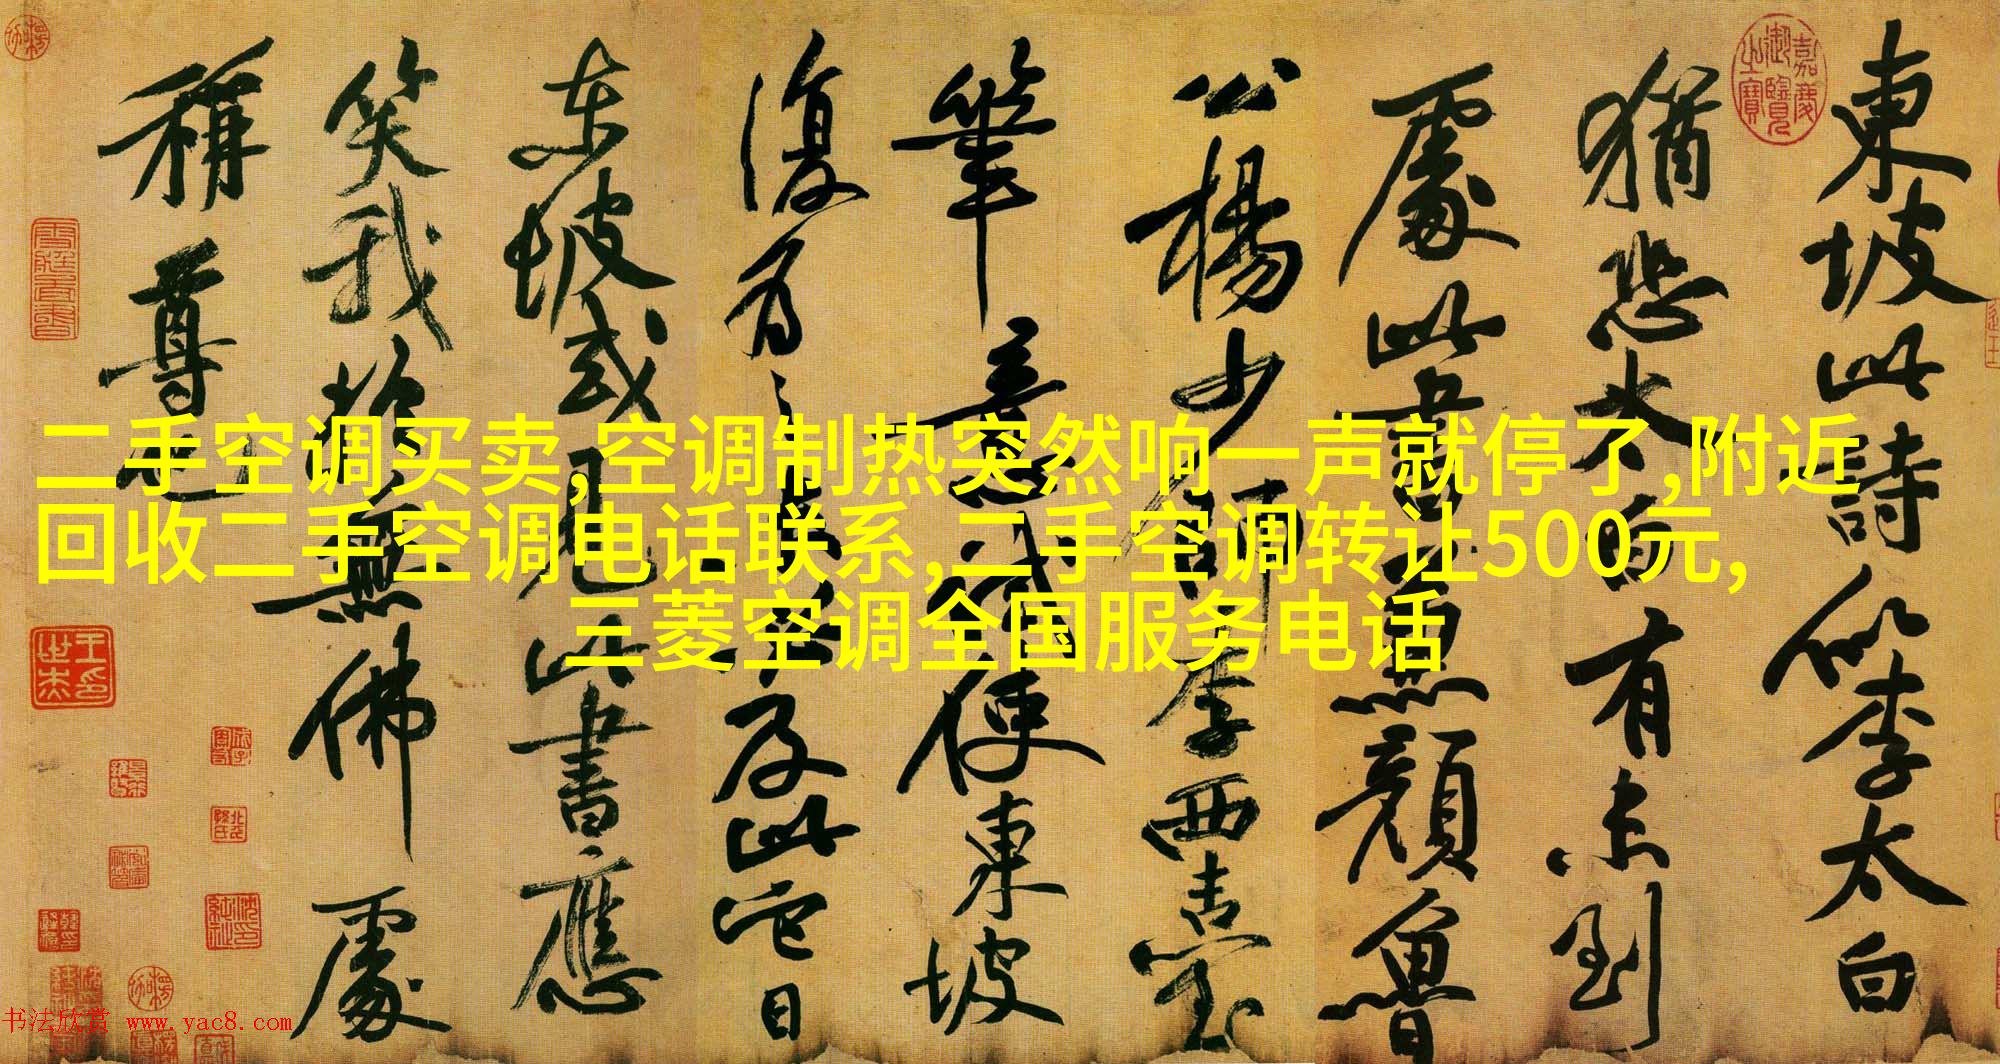 東坡此詩似李太白
猶恐太白有未到
處此書兼顏魯
公楊少師李西臺
筆意試使東坡
復為之未必及此它日
東坡或見此書應
笑我於無佛處
稱尊也
二手空调买卖,空调制热突然响一声就停了,附近
回收二手空调电话联系,二手空调转让500元,
三菱空调全国服务电话
嘉慶御覽之寶
书法欣赏 www.yac8.com